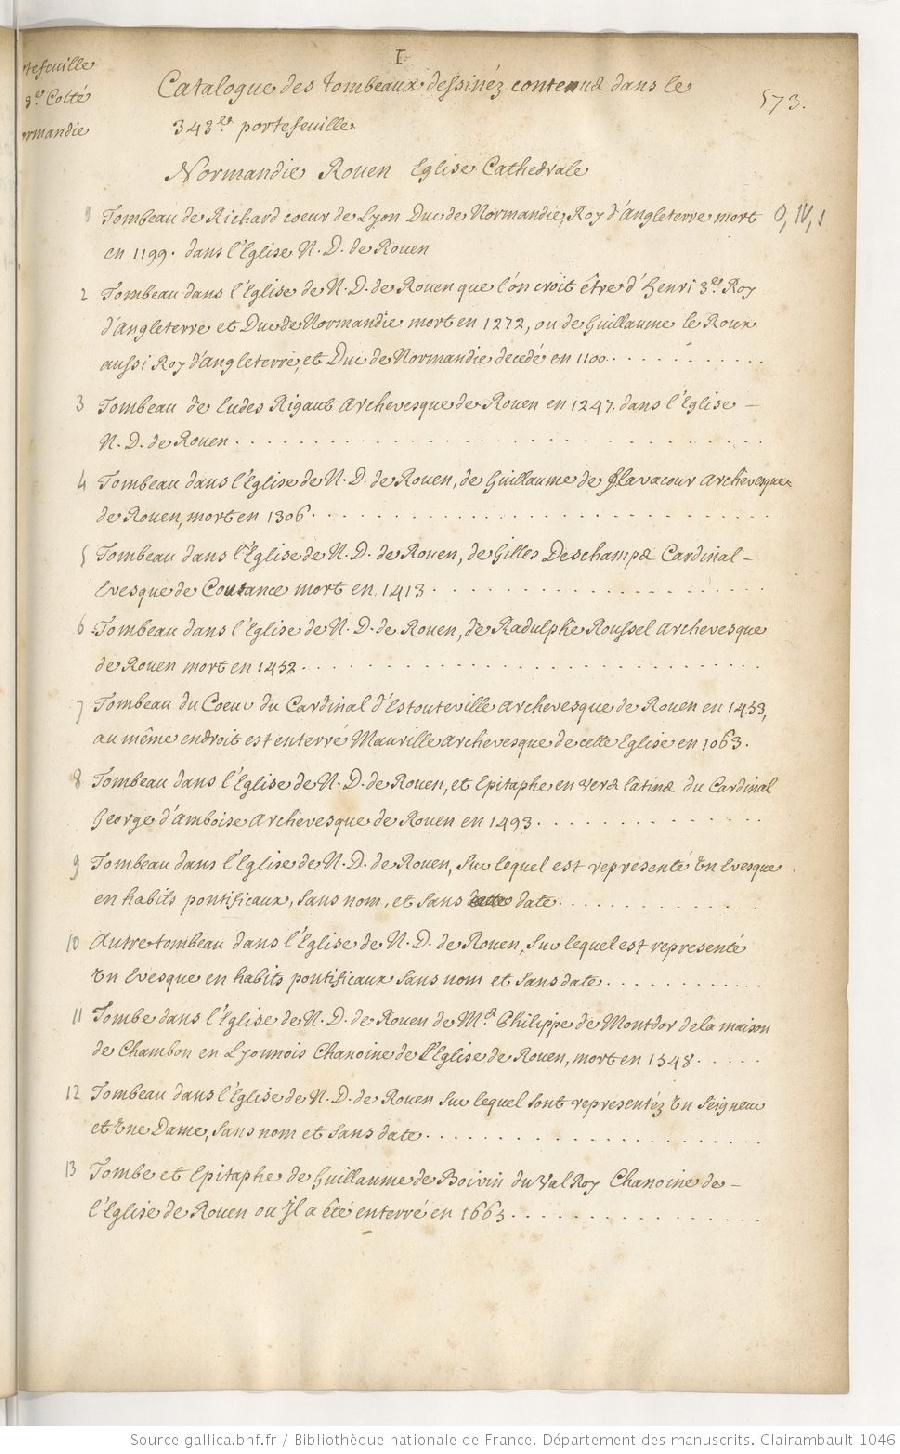 I
tefeuille
3.es Cotté
ormandie
Catalogue des Tombeaux dessinéz contenus dans le
573.
343.es portefeuille
Normandie Rouen Eglise Cathedrale
1 Tombeau de Richard coeur de Lyon Duc de Normandie, Roy d'Angleterre mort O, IV, 1
en 1199. dans l'Eglise N. D. de Rouen
2 Tombeau dans l'Eglise de N. D. de Rouen que l'on croit être d'Henri 3.es Roy
d'Angleterre et Duc de Normandie mort en 1272, ou de Guillaume le Roux
aussi Roy d'Angleterre, et Duc de Normandie décedé en 1100. . . . . . . . . .
3 Tombeau de Eudes Rigaut Archevesque de Rouen en 1247. dans l'Eglise –
N. D. de Rouen . . . . . . . . . . . . . . . . . . . . .
4 Tombeau dans l'Eglise de N. D. de Rouen, de Guillaume de Flavacour Archevesque
de Rouen, mort en 1306 . . . . . . . . . . . . . . . . . . .
5 Tombeau dans l'Eglise de N. D. de Rouen, de Gilles Deschamps Cardinal –
Evesque de Coutance mort en 1413 . . . . . . . . . . . . . .
6 Tombeau dans l'Eglise de N. D. de Rouen, de Radulphe Roussel Archevesque
de Rouen mort en 1452 . . . . . . . . . . . . . . . . . . .
7 Tombeau du Coeur du Cardinal d'Estouteville Archevesque de Rouen en 1453,
au même endroit est enterré Maurille Archevesque de cette Eglise en 1063.
8 Tombeau dans l'Eglise de N. D. de Rouen, et Epitaphe en vers latins du Cardinal
George d'Amboise Archevesque de Rouen en 1493 . . . . . . . . .
9 Tombeau dans l'Eglise de N. D. de Rouen, sur lequel est representé Un Evesque
en habits pontificaux, sans nom, et sans date . . . . . . . . .
10 Autre tombeau dans l'Eglise de N. D. de Rouen, sur lequel est representé
Un Evesque en habits pontificaux sans nom et sans date . . . . . . .
11 Tombe dans l'Eglise de N. D. de Rouen de M.re Philippe de Montdor de la maison
de Chambon en Lyonnois Chanoine de l'Eglise de Rouen, mort en 1548 . . . . .
12 Tombeau dans l'Eglise de N. D. de Rouen sur lequel sont representéz Un Seigneur
et Une Dame, sans nom et sans date . . . . . . . . . . . . . .
13 Tombe et Epitaphe de Guillaume de Boivin du Val Roy Chanoine de –
l'Eglise de Rouen ou Jl a été enterré en 1663 . . . . . . . . . . .
Source gallica.bnf.fr / Bibliothèque nationale de France. Département des manuscrits. Clairambault 1046